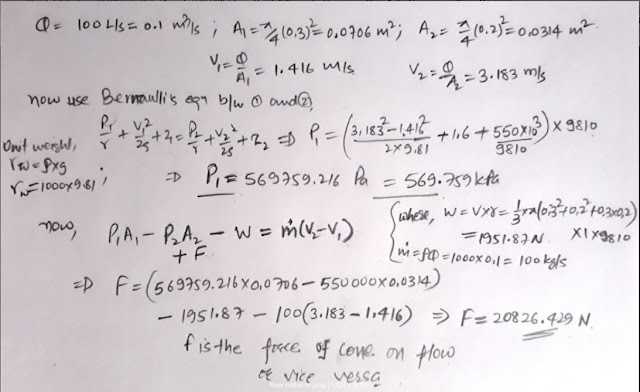 Q = 100 L/s = 0.1 m³/s ; A₁ = π/4 (0.3)² = 0.0706 m² ; A₂ = π/4 (0.2)² = 0.0314 m²
V₁ = Q/A₁ = 1.416 m/s
V₂ = Q/A₂ = 3.183 m/s
now use Bernaulli's eqn b/w ① and ②,
P₁/r + V₁²/2g + z₁ = P₂/r + V₂²/2g + z₂ ⇒ P₁ = ((3.183² - 1.416²)/(2×9.81) + 1.6 + (550×10³)/9810) × 9810
Unit weight,
rw = ρ×g
rw = 1000×9.81 ;
⇒ P₁ = 569759.216 Pa = 569.759 kPa
now, P₁A₁ - P₂A₂ - W + F = ṁ(V₂-V₁)
{where, W = V×r = 1/3 × π(0.3²+0.2²+0.3×0.2) × 1 × 9810
= 1951.87 N.
ṁ = ρQ = 1000×0.1 = 100 kg/s
⇒ F = (569759.216×0.0706 - 550000×0.0314)
- 1951.87 - 100(3.183 - 1.416) ⇒ F = 20826.429 N.
f is the force of cone on flow
or vice vessa